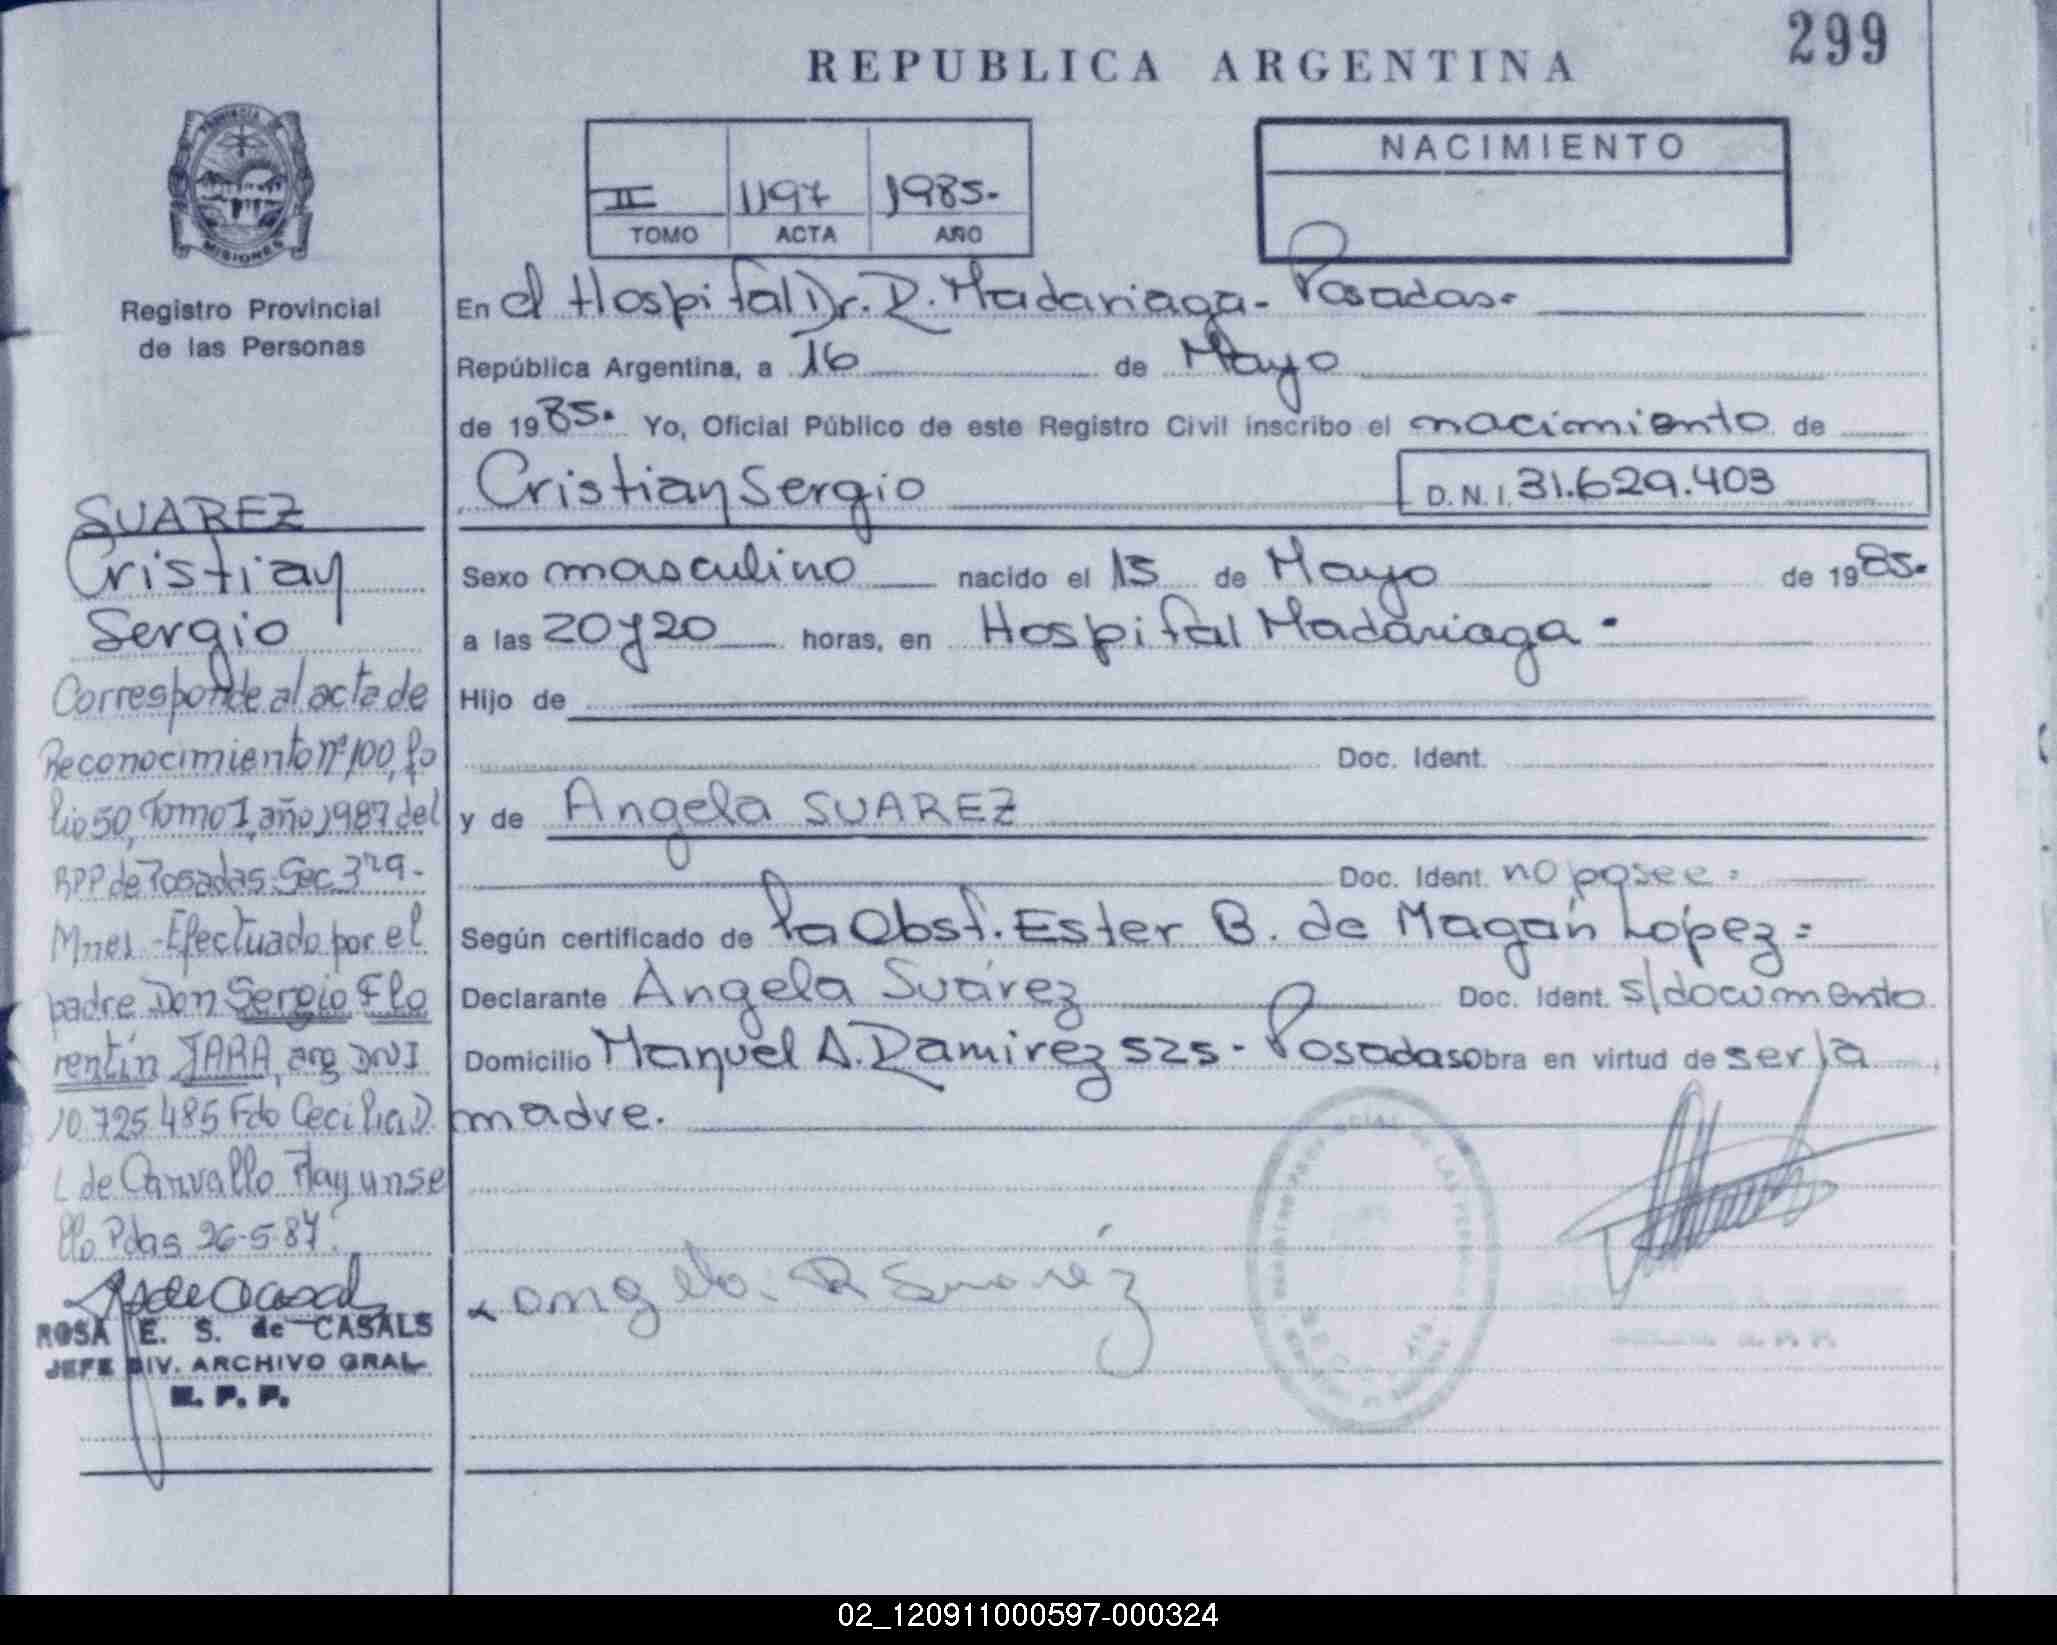 299
REPUBLICA ARGENTINA
PROVINCIA DE
MISIONES
Registro Provincial
de las Personas
II 1197 1985.-
TOMO ACTA AÑO
NACIMIENTO
En el Hospital Dr. R. Madariaga - Posadas.-
República Argentina, a 16 de Mayo
de 1985.- Yo, Oficial Público de este Registro Civil inscribo el nacimiento de
Cristian Sergio D.N.I. 31.629.403
Sexo masculino nacido el 15 de Mayo de 1985.-
a las 20 y 20 horas, en Hospital Madariaga.-
Hijo de
Doc. Ident.
y de Angela SUAREZ
Doc. Ident. no posee:
Según certificado de la Obst. Ester B. de Magán López:
Declarante Angela Suárez Doc. Ident. s/documento
Domicilio Manuel A. Ramirez 525 - Posadas obra en virtud de ser la
madre.
Angela R Suarez
SUAREZ
Cristian
Sergio
Corresponde al acta de
Reconocimiento nº 100, fo
lio 50, Tomo I, año 1987 del
RPP de Posadas Sec 3ra.-
Mnes.- Efectuado por el
padre Don Sergio Flo
rentín JARA, arg DNI
10.725.485 Fdo Cecilia D.
L de Carvallo Hay un se
llo Pdas 26-5-87.
ROSA E. S. de CASALS
JEFE DIV. ARCHIVO GRAL.
02_120911000597-000324